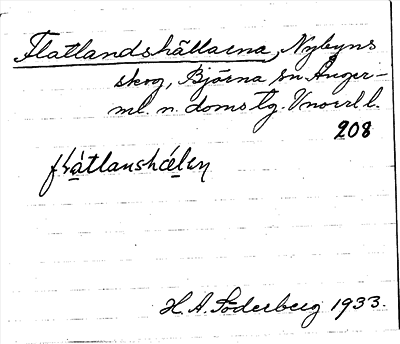 Flatlandshällarna, Nybyns
skog, Björna sn Ånger-
ml. n. doms tg. Vnorrl l.
208
H. A. Söderberg 1933.